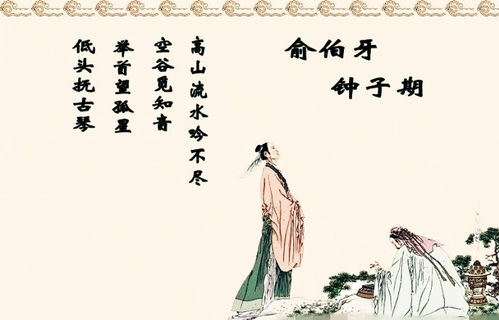 俞伯牙
钟子期
高山流水吟不尽
空谷觅知音
举首望孤星
低头抚古琴